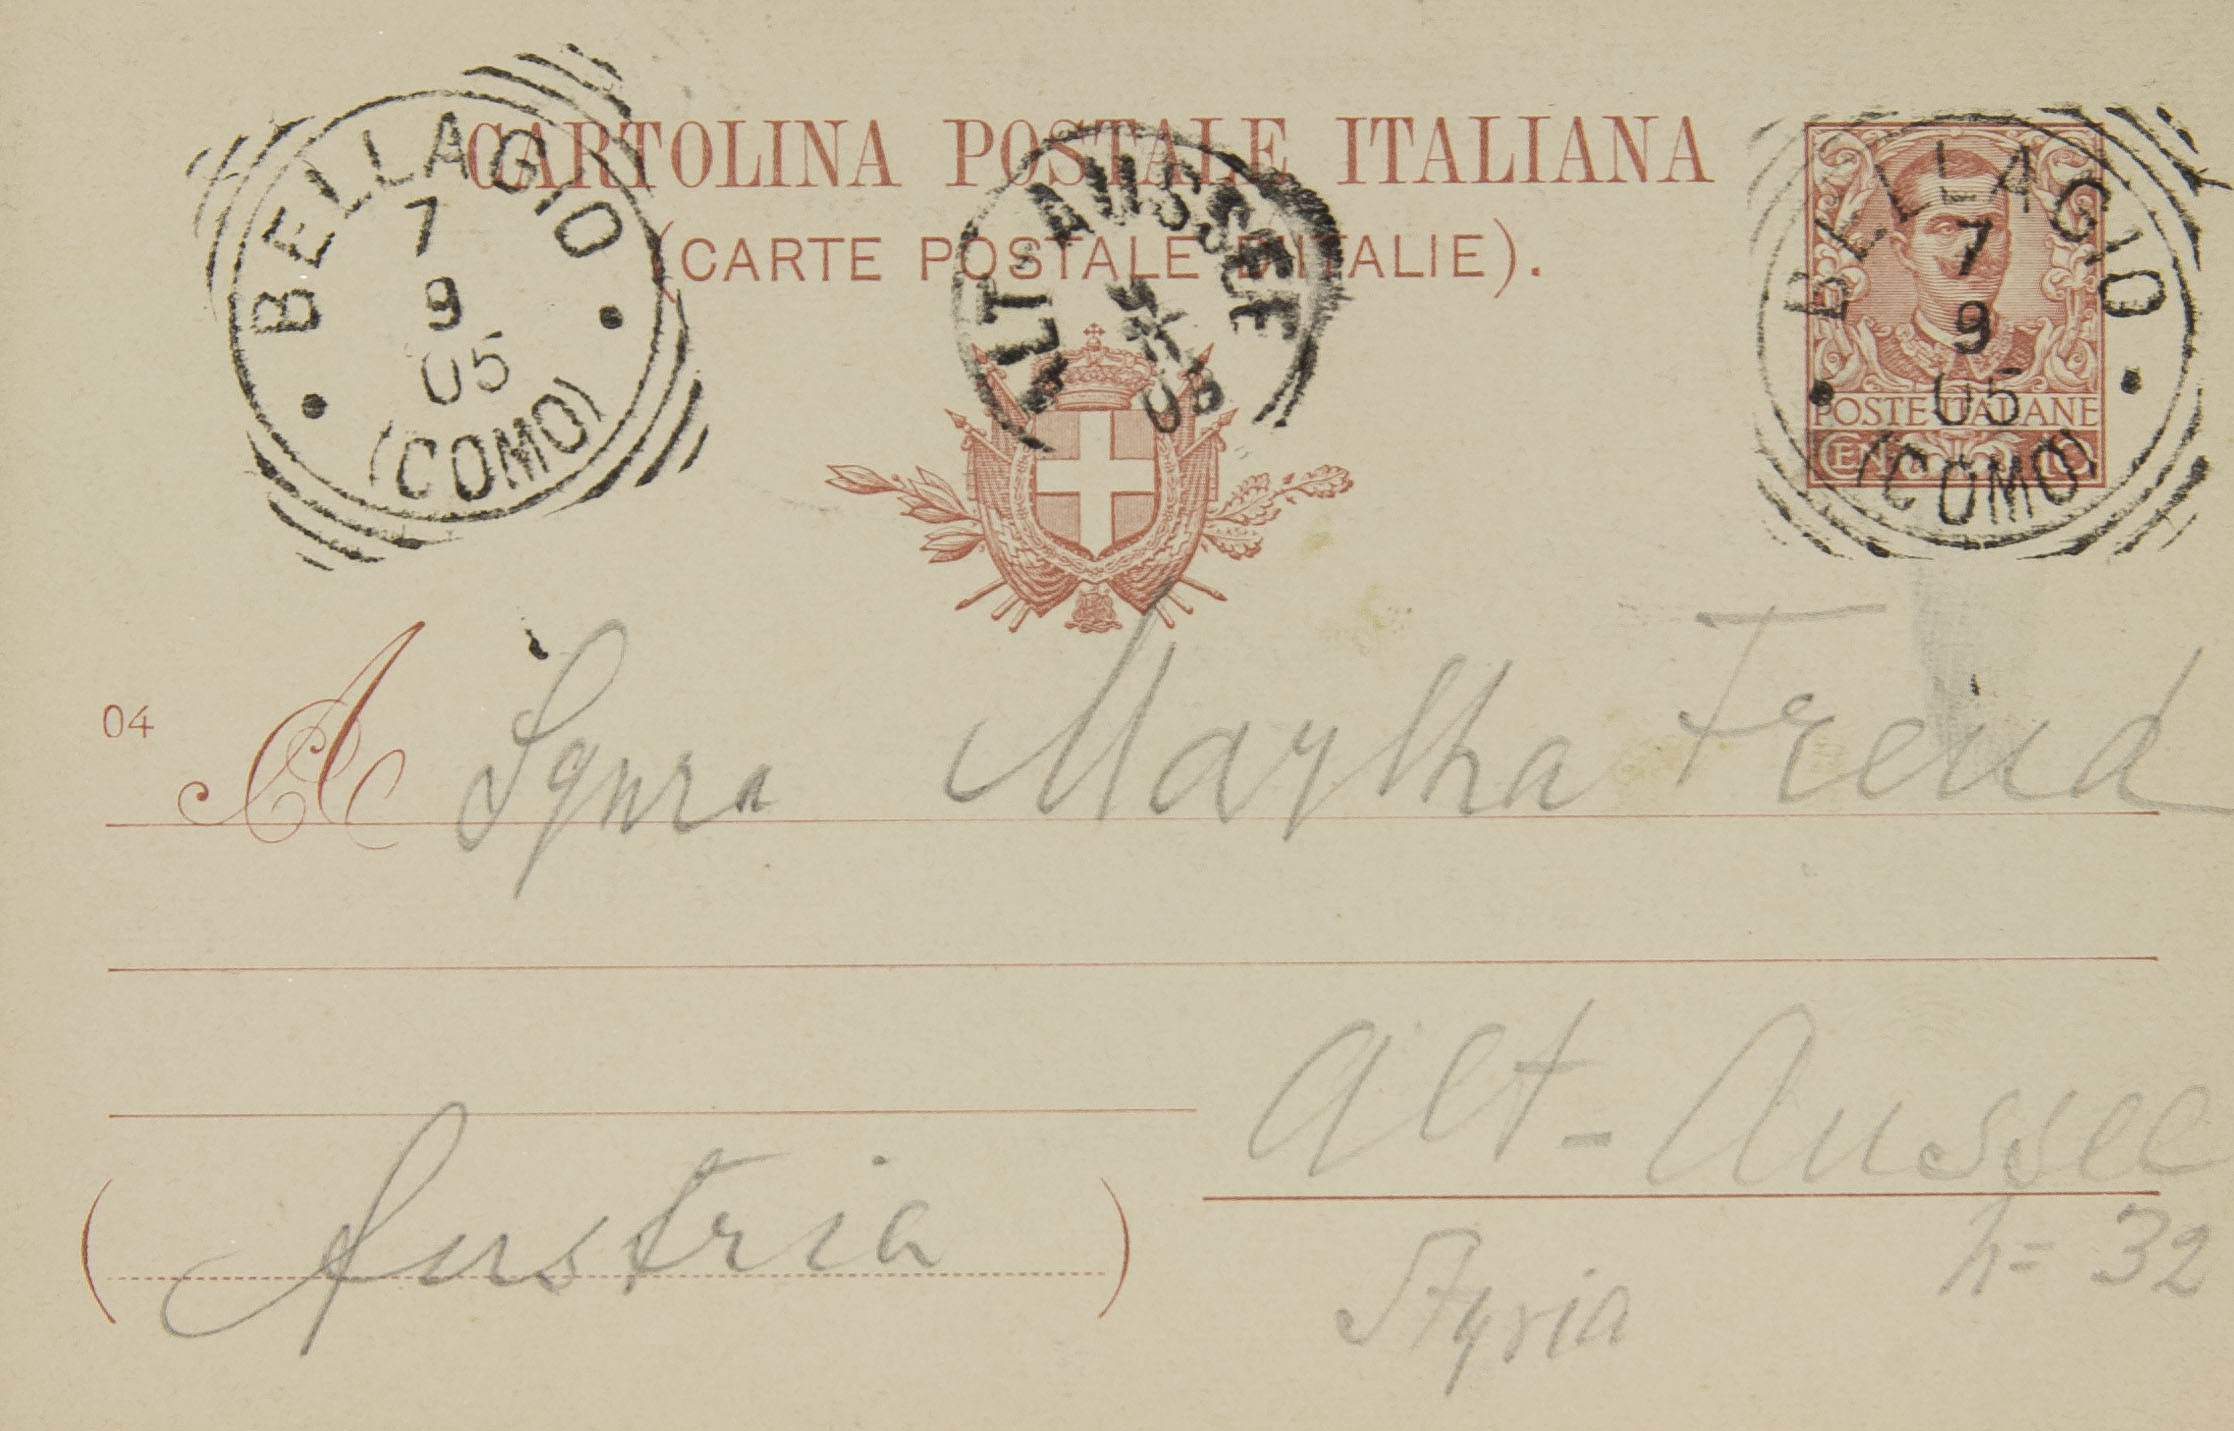 CARTOLINA POSTALE ITALIANA
(CARTE POSTALE D'ITALIE).
BELLAGIO
7
9
05
(COMO)
ALT-AUSSEE
BELLAGIO
7
9
05
(COMO)
POSTE ITALIANE
CEN. 10
04
A Sgnra Martha Freud
Alt-Aussee
h= 32
(Austria)
Styria